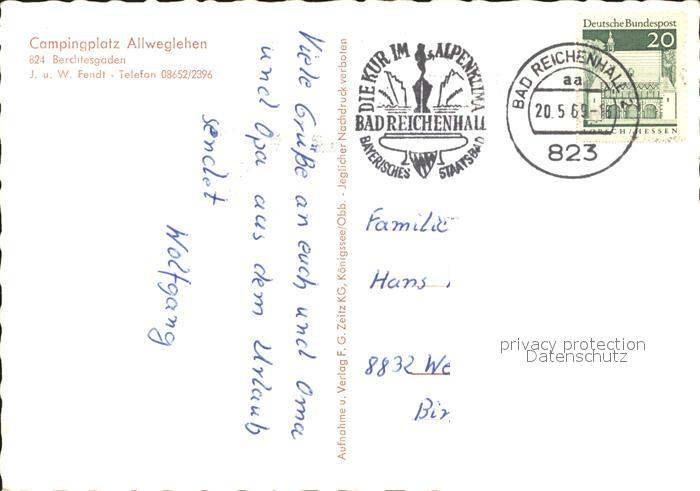 Campingplatz Allweglehen
824 Berchtesgaden
J. u. W. Fendt - Telefon 08652/2396
Viele Grüße an euch und Oma
und Opa aus dem Urlaub
sendet
Wolfgang
Aufnahme u. Verlag F. G. Zeitz KG, Königssee/Obb. - Jeglicher Nachdruck verboten
DIE KUR IM ALPENKLIMA
BAD REICHENHALL
BAYERISCHES STAATSBAD
BAD REICHENHALL 2
aa
20.5.69
823
Deutsche Bundespost
20
LORSCH/HESSEN
Familie
Hans
8832 We
Bir
privacy protection
Datenschutz